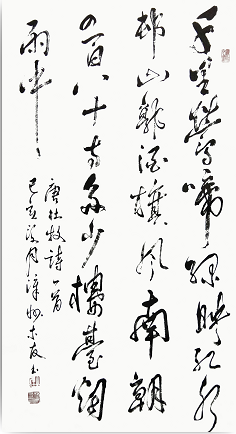 千里鶯啼綠映紅水
邨山郭酒旗風南朝
四百八十寺多少樓臺烟
雨中
唐杜牧詩一首
己亥 月漳州木友书